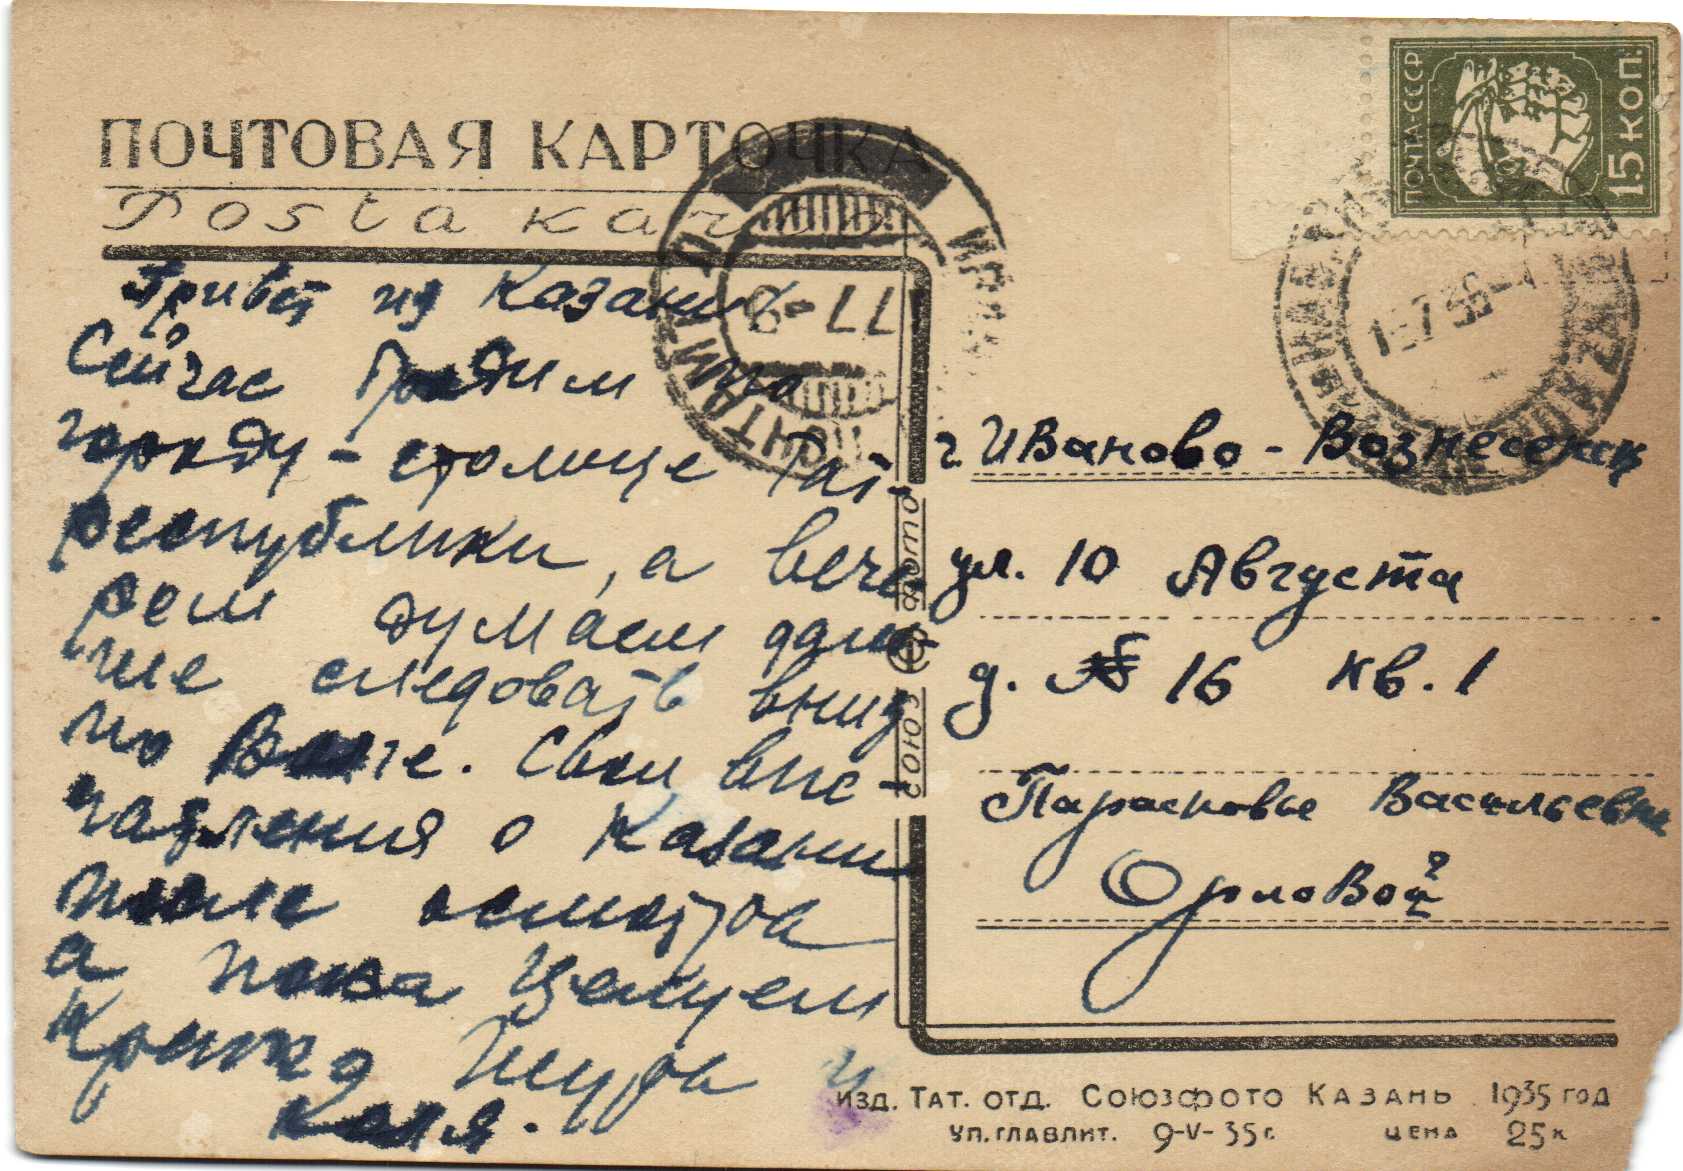 ПОЧТОВАЯ КАРТОЧКА
Posta kar
ПОЧТА·СССР
15 КОП.
Привет из Казани
Сейчас бродим по
городу - столице Тат-
республики, а вече
ром думаем даль-
ше следовать вниз
по Волге. Свои впе-
чатления о Казани
после осмотра
а пока целуем
Крепко Шура и
Коля.
г. Иваново - Вознесенск
ул. 10 Августа
д. № 16 кв. 1
Парасковье Васильевне
Орловой
союз фото
ПОЧТАМТ
17 - 9
1 - 7 36
изд. Тат. отд. Союзфото Казань 1935 год
Уп. главлит. 9-V-35 г. цена 25 к